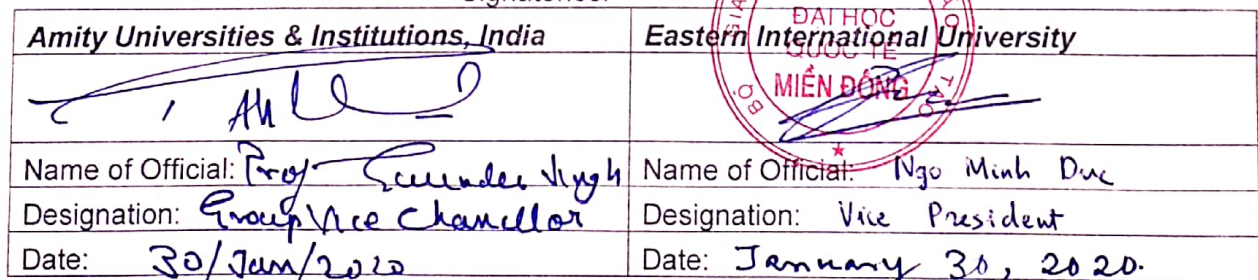 Amity Universities & Institutions, India
Eastern International University
ĐẠI HỌC
QUỐC TẾ
MIỀN ĐÔNG
BỘ GIÁ
TẠO
Name of Official: Prof Gurinder Singh
Name of Official: Ngo Minh Duc
Designation: Group Vice Chancellor
Designation: Vice President
Date: 30/Jan/2020
Date: January 30, 2020.